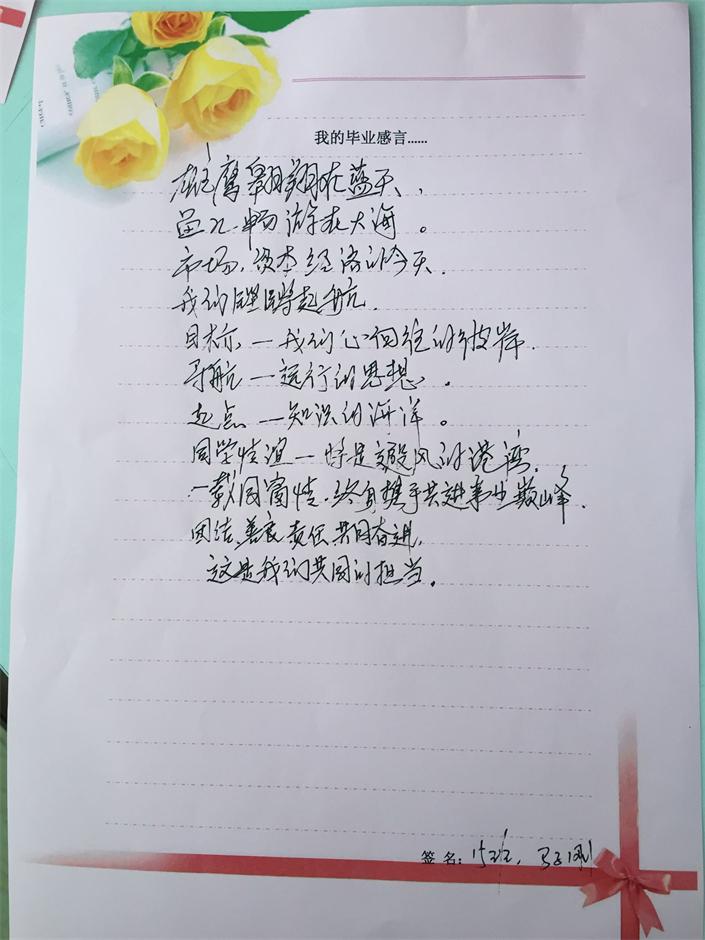 我的毕业感言......
雄鹰翱翔在蓝天,
鱼儿畅游在大海。
市场,资本经济的今天.
我们从这里起航.
目标—我们心向往的彼岸.
导航—远行的思想。
起点—知识的海洋。
同学情谊—将是避风的港湾.
一载同窗情.终身携手共进事业巅峰.
团结,善良,责任,共同奋进,
这是我们共同的担当.
签名: 15班,